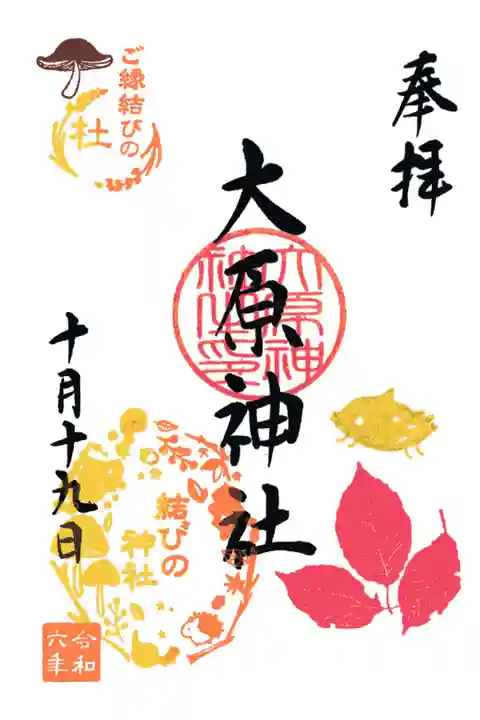 奉拝
ご縁結びの
社
大原神社
大原神社之印
結びの
神社
十月十九日
令和
六年